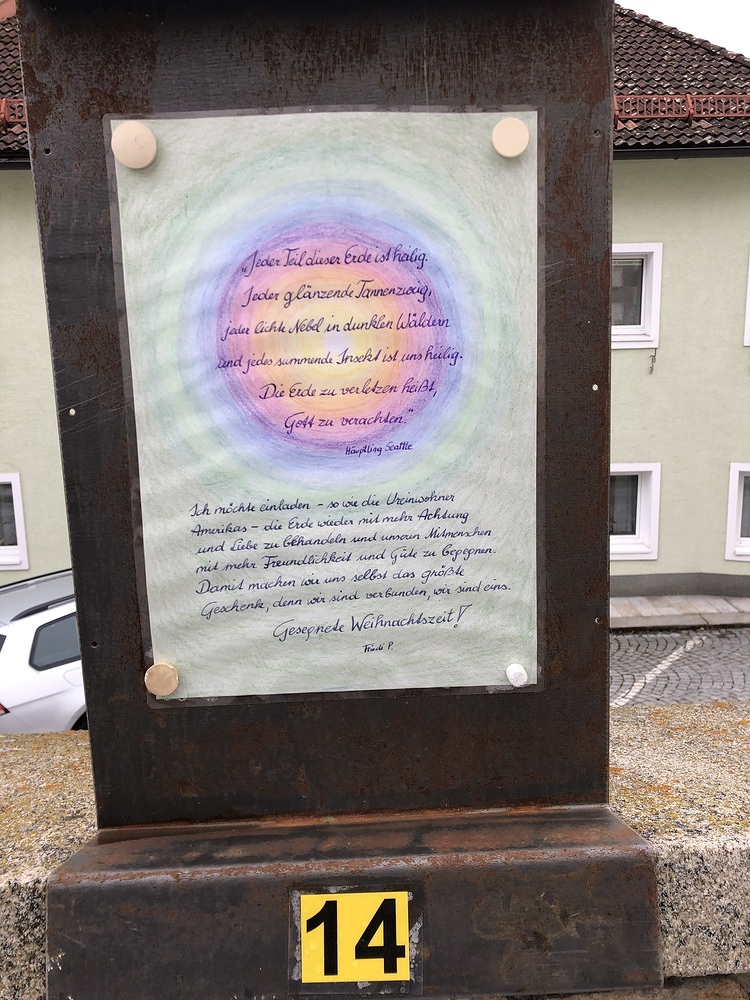 „Jeder Teil dieser Erde ist heilig.
Jeder glänzende Tannenzweig,
jeder lichte Nebel in dunklen Wäldern
und jedes summende Insekt ist uns heilig.
Die Erde zu verletzen heißt,
Gott zu verachten."
Häuptling Seattle
Ich möchte einladen - so wie die Ureinwohner
Amerikas - die Erde wieder mit mehr Achtung
und Liebe zu behandeln und unseren Mitmenschen
mit mehr Freundlichkeit und Güte zu begegnen.
Damit machen wir uns selbst das größte
Geschenk, denn wir sind verbunden, wir sind eins.
Gesegnete Weihnachtszeit!
P.
14